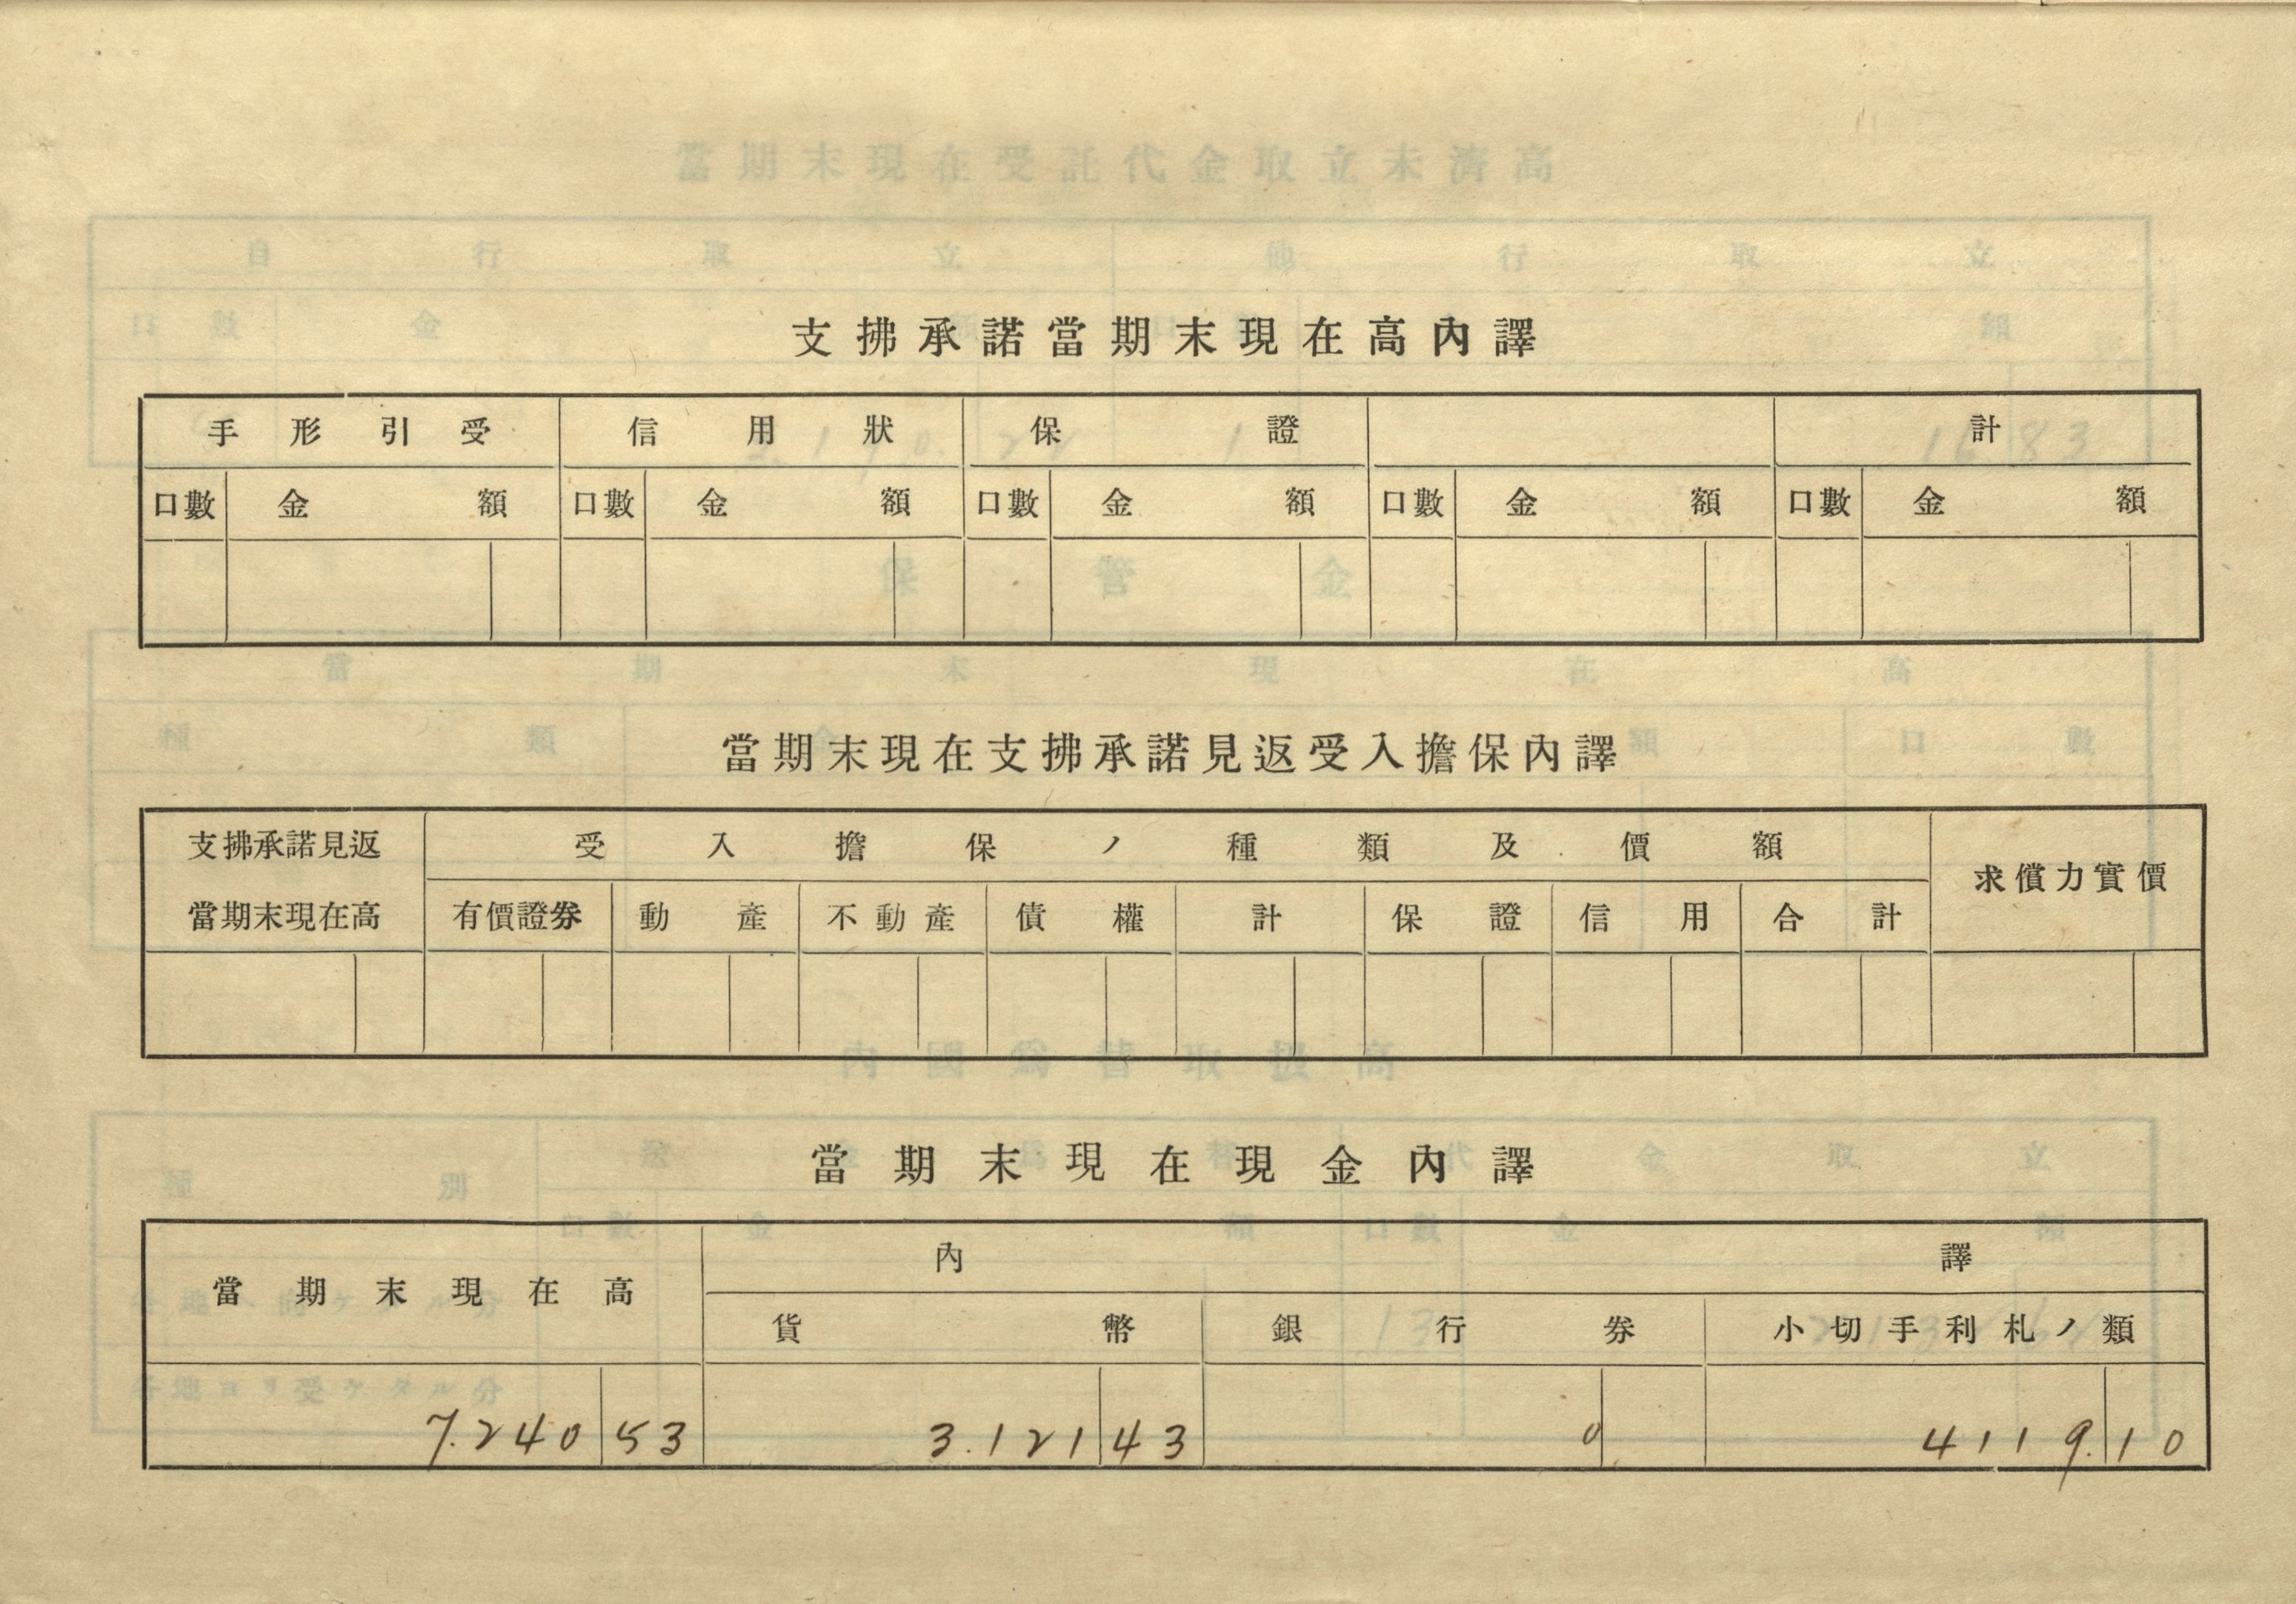 支拂承諾當期末現在高內譯
手形引受 信用狀 保證 計
口數 金額 口數 金額 口數 金額 口數 金額 口數 金額
當期末現在支拂承諾見返受入擔保內譯
支拂承諾見返 受入擔保ノ種類及價額 求償力實價
當期末現在高 有價證券 動產 不動產 債權 計 保證 信用 合計
當期末現在現金內譯
當期末現在高 內譯
貨幣 銀行券 小切手利札ノ類
7.240 53 3.121 43 0 4119. 10